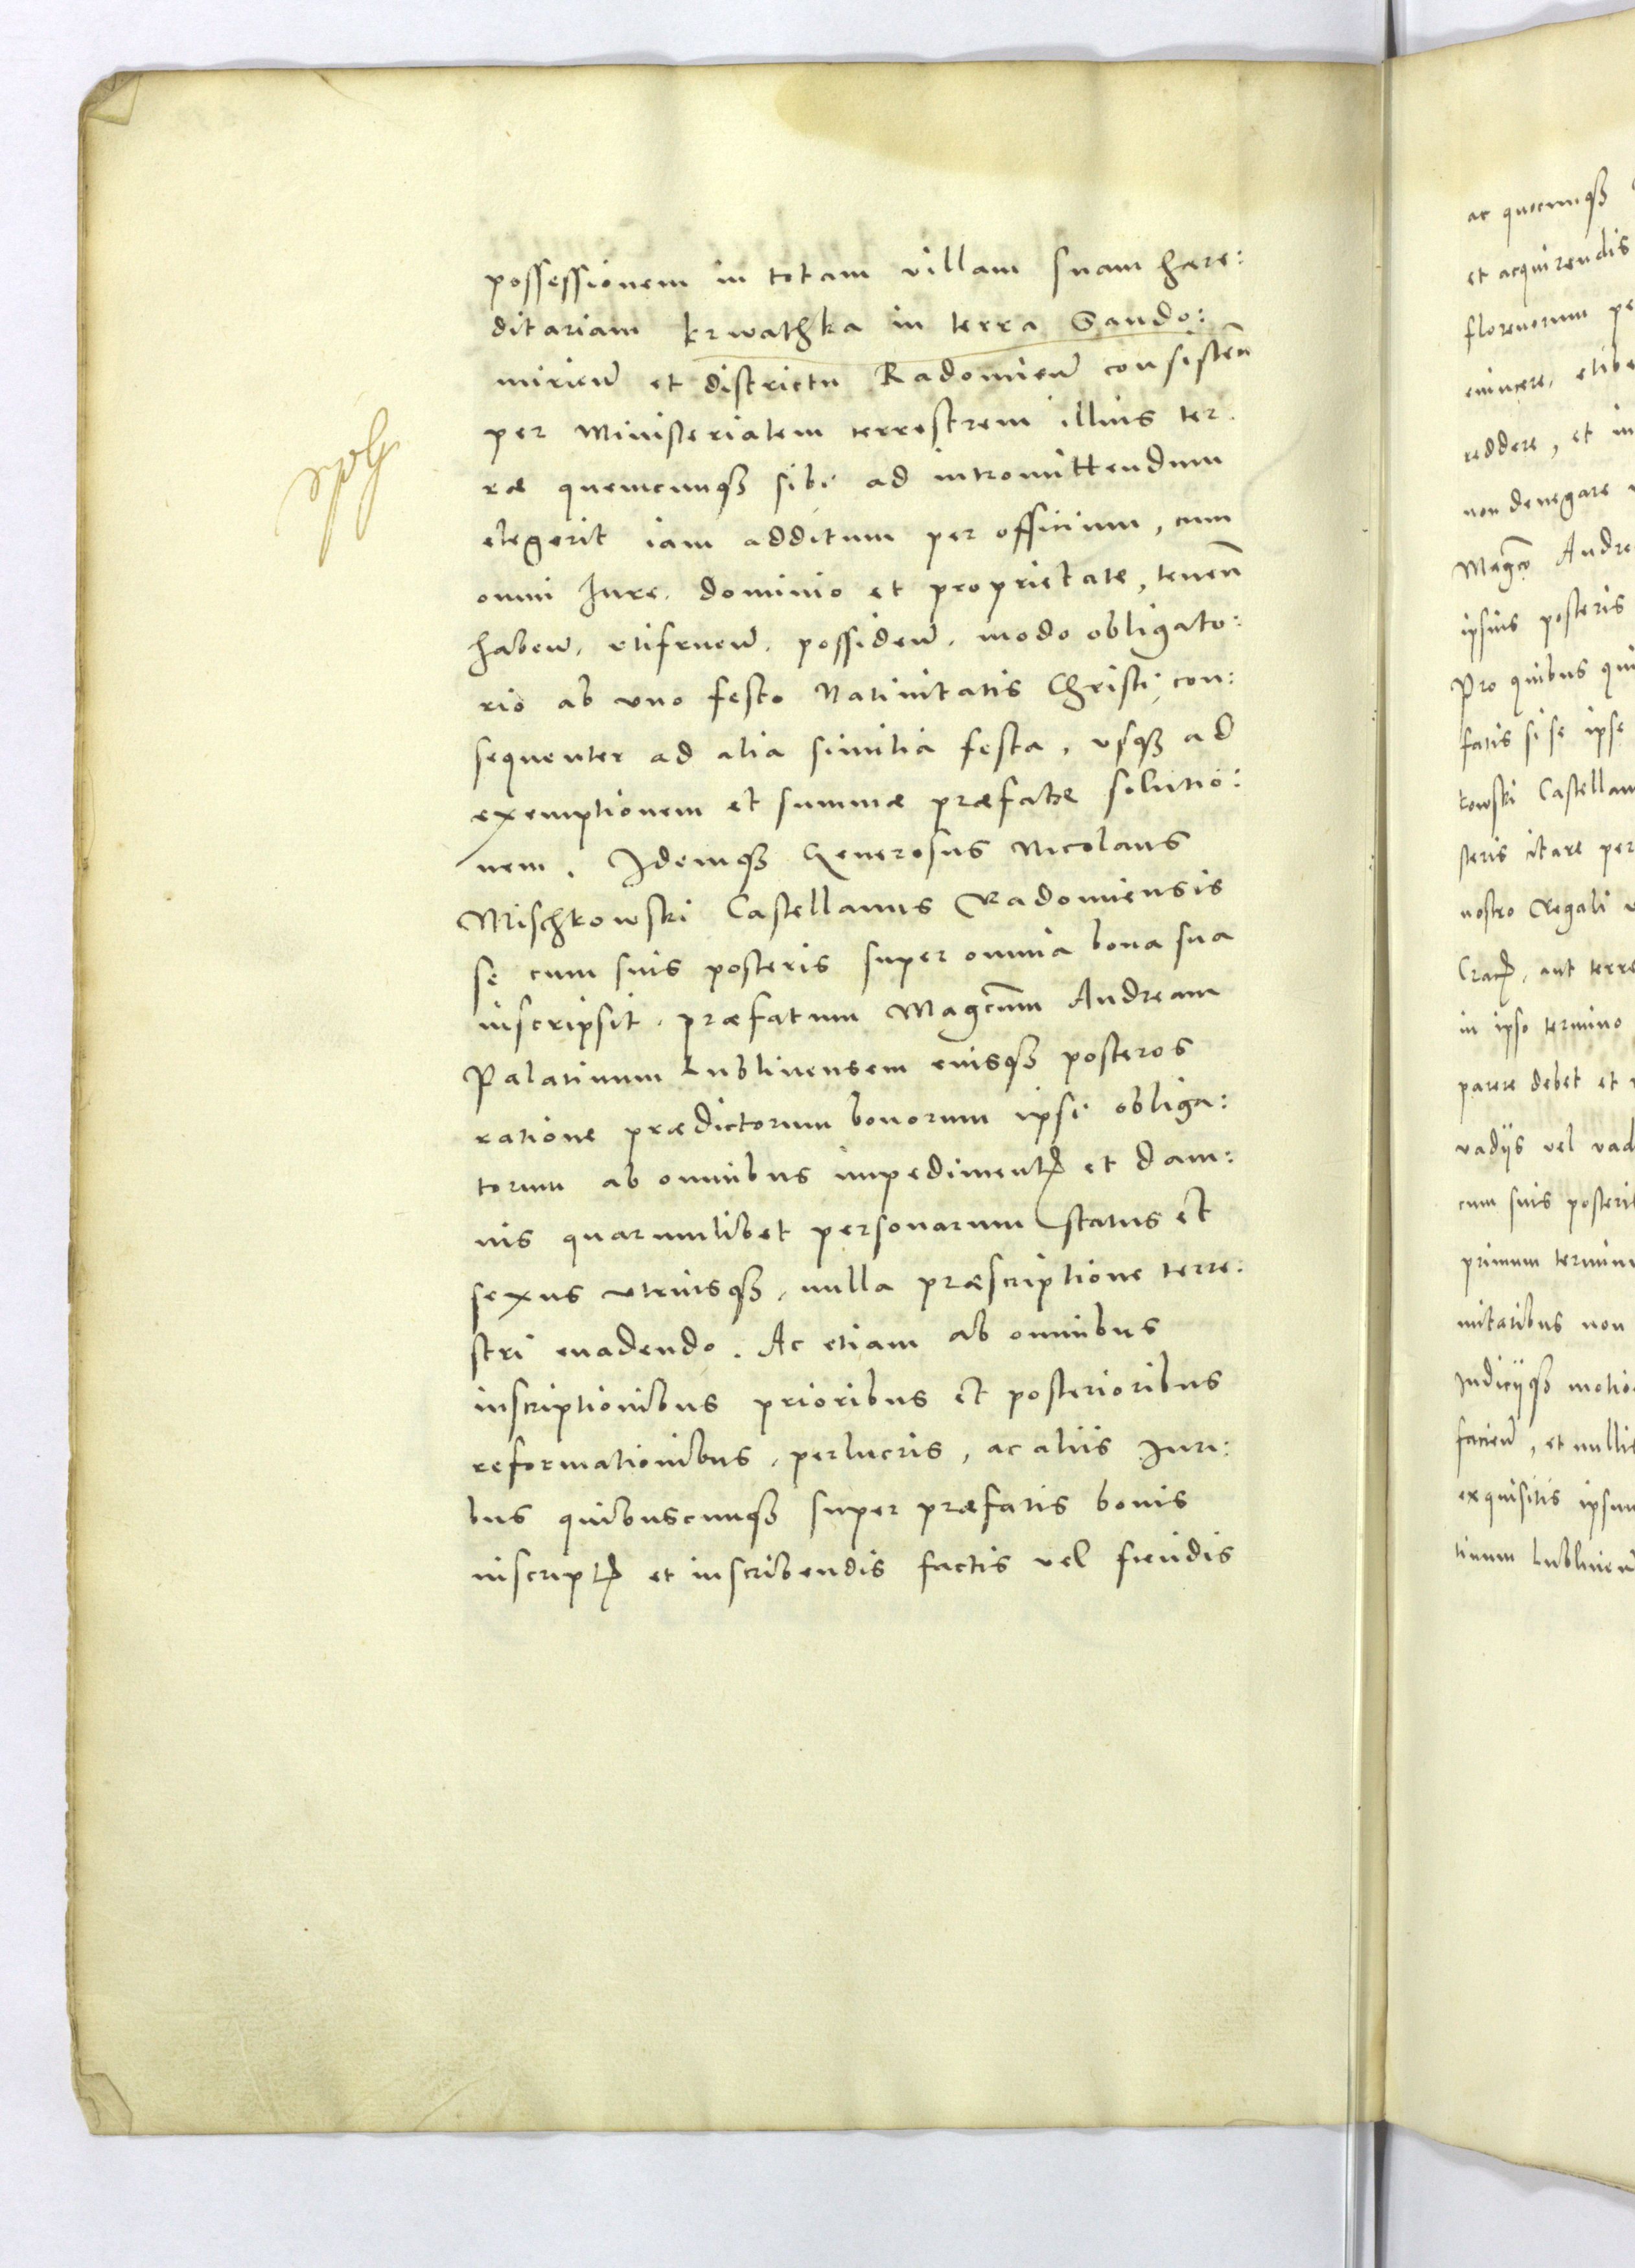 possessionem in totam villam suam hære:
ditariam krwathka in terra Sando:
mirien̄ et districtu Radomien̄ consisten̄
per Ministerialem terrestrem illius ter.
ræ quemcunqȝ sibi ad intromittendum
elegerit iam additum per officium, cum
omni Iure. dominio et proprietate, tenen̄
haben̄. utifruen̄. possiden̄. modo obligato:
rio ab uno festo Natiuitatis Christi, con:
sequenter ad alia similia festa, usqȝ ad
exemptionem et summæ præfatæ solutio:
nem. Idemqȝ Generosus Nicolaus
Mischkowski Castellanus Radomiensis
se cum suis posteris super omnia bona sua
inscripsit. præfatum Magcūm Andream
Palatinum Lublinensem eiusqȝ posteros
ratione prædictorum bonorum ipsi obliga:
torum ab omnibus impedimentꝭ et dam:
nis quarumlibet personarum status et
sexus utriusqȝ, nulla præscriptione terre:
stri euadendo. Ac etiam ab omnibus
inscriptionibus prioribus et posterioribus
reformationibus, perlucris, ac aliis Iuri:
bus quibuscunqȝ super præfatis bonis
inscriptꝭ et inscribendis factis vel fiendis
ac quocunqȝ
et acquirendis
florenorum pe
euincere, et libe
reddere, et in
non denegare
Magcō Andre
ipsius posteris
Pro quibus qui
fatis si se ipse
kowski Castellan
steris citare per
nostro Regali
Cracꝭ, aut terre
in ipso termino
parere debet et
vadiis vel vad
cum suis posteri
primum terminu
mitatibus non
Iudiciiqȝ motio
facien̄, et nullis
exquisitis ipsum
tinum Lublinen̄